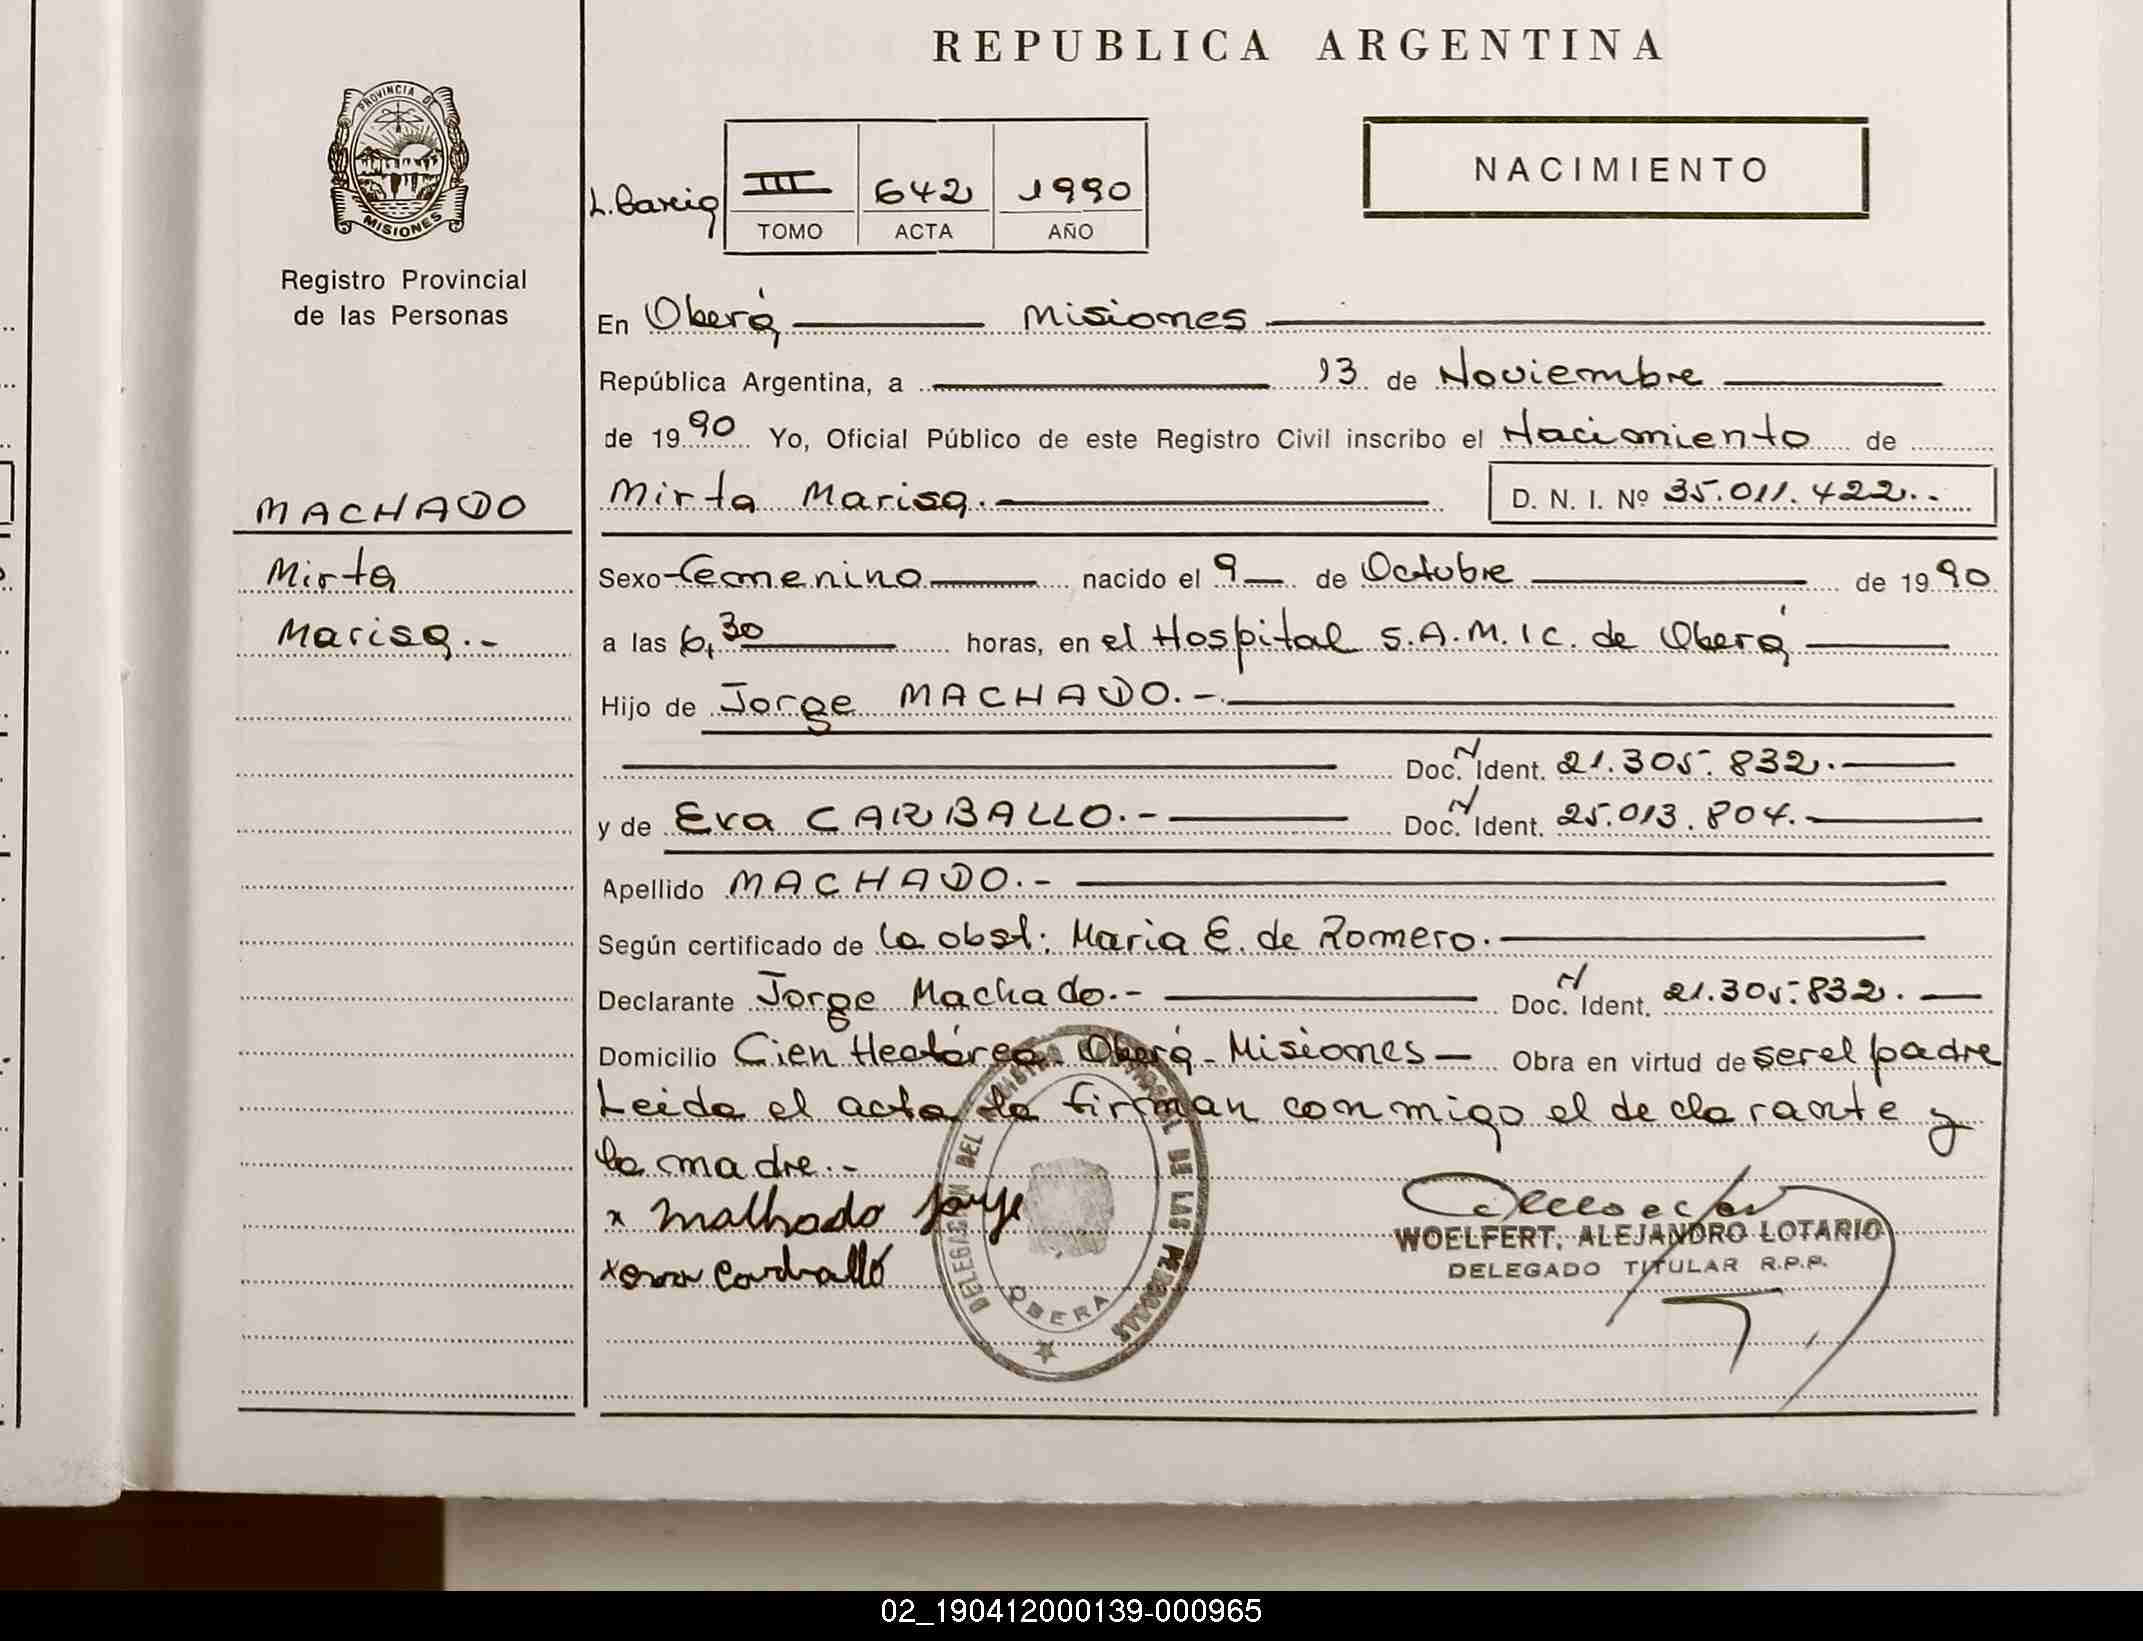 REPUBLICA ARGENTINA
PROVINCIA DE
MISIONES
Registro Provincial
de las Personas
NACIMIENTO
III 642 1990
TOMO ACTA AÑO
En Oberá Misiones
República Argentina, a 13 de Noviembre
de 1990 Yo, Oficial Público de este Registro Civil inscribo el Nacimiento de
Mirta Marisa.- D. N. I. Nº 35.011.422.-
MACHADO
Mirta
Marisa.-
Sexo Femenino nacido el 9 de Octubre de 1990
a las 6,30 horas, en el Hospital S.A.M.I.C. de Oberá
Hijo de Jorge MACHADO.-
Doc. N Ident. 21.305.832.-
y de Eva CARBALLO.- Doc. N Ident. 25.013.804.-
Apellido MACHADO.-
Según certificado de la obst: Maria E. de Romero.-
Declarante Jorge Machado.- Doc. N Ident. 21.305.832.-
Domicilio Cien Hectárea - Oberá - Misiones - Obra en virtud de ser el padre
Leida el acta la firman conmigo el declarante y
la madre.-
x Malhado Jorge
x eva carballo
DELEGACION DEL REGISTRO PROVINCIAL DE LAS PERSONAS
OBERA
WOELFERT, ALEJANDRO LOTARIO
DELEGADO TITULAR R.P.P.
02_190412000139-000965